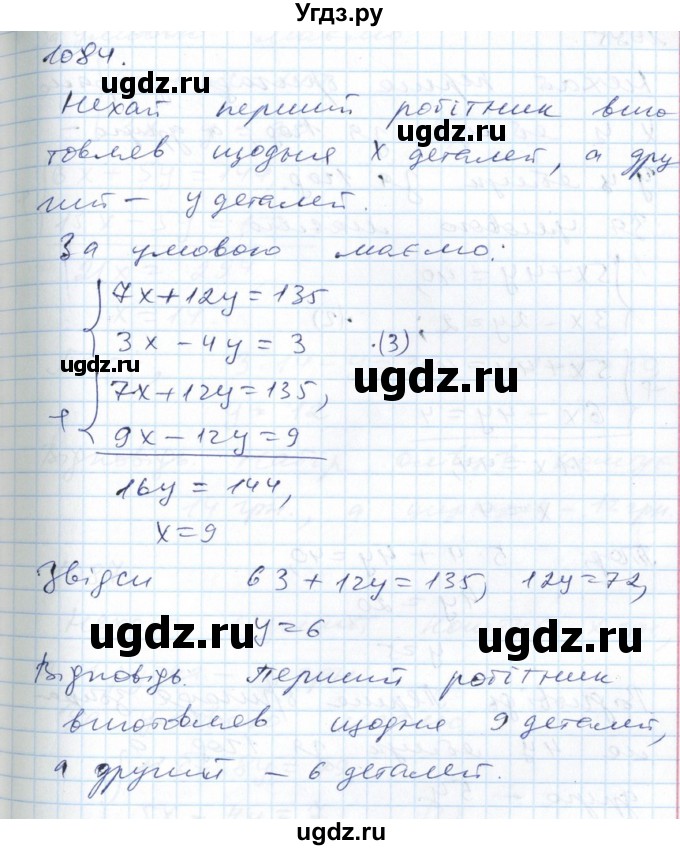 Угдз.ру
1084.
Нехай перший робітник виго
товляв щодня x деталей, а дру
гий — y деталей.
За умовою маємо:
7x+12y=135
3x-4y=3 ·(3)
7x+12y=135,
+ 9x-12y=9
16y=144,
x=9
Звідси 63+12y=135, 12y=72,
y=6
Відповідь. Перший робітник
виготовляв щодня 9 деталей,
а другий – 6 деталей.
ugdz.ru
ugdz.ru
ugdz.ru
ugdz.ru
ugdz.ru
ugdz.ru
ugdz.ru
ugdz.ru